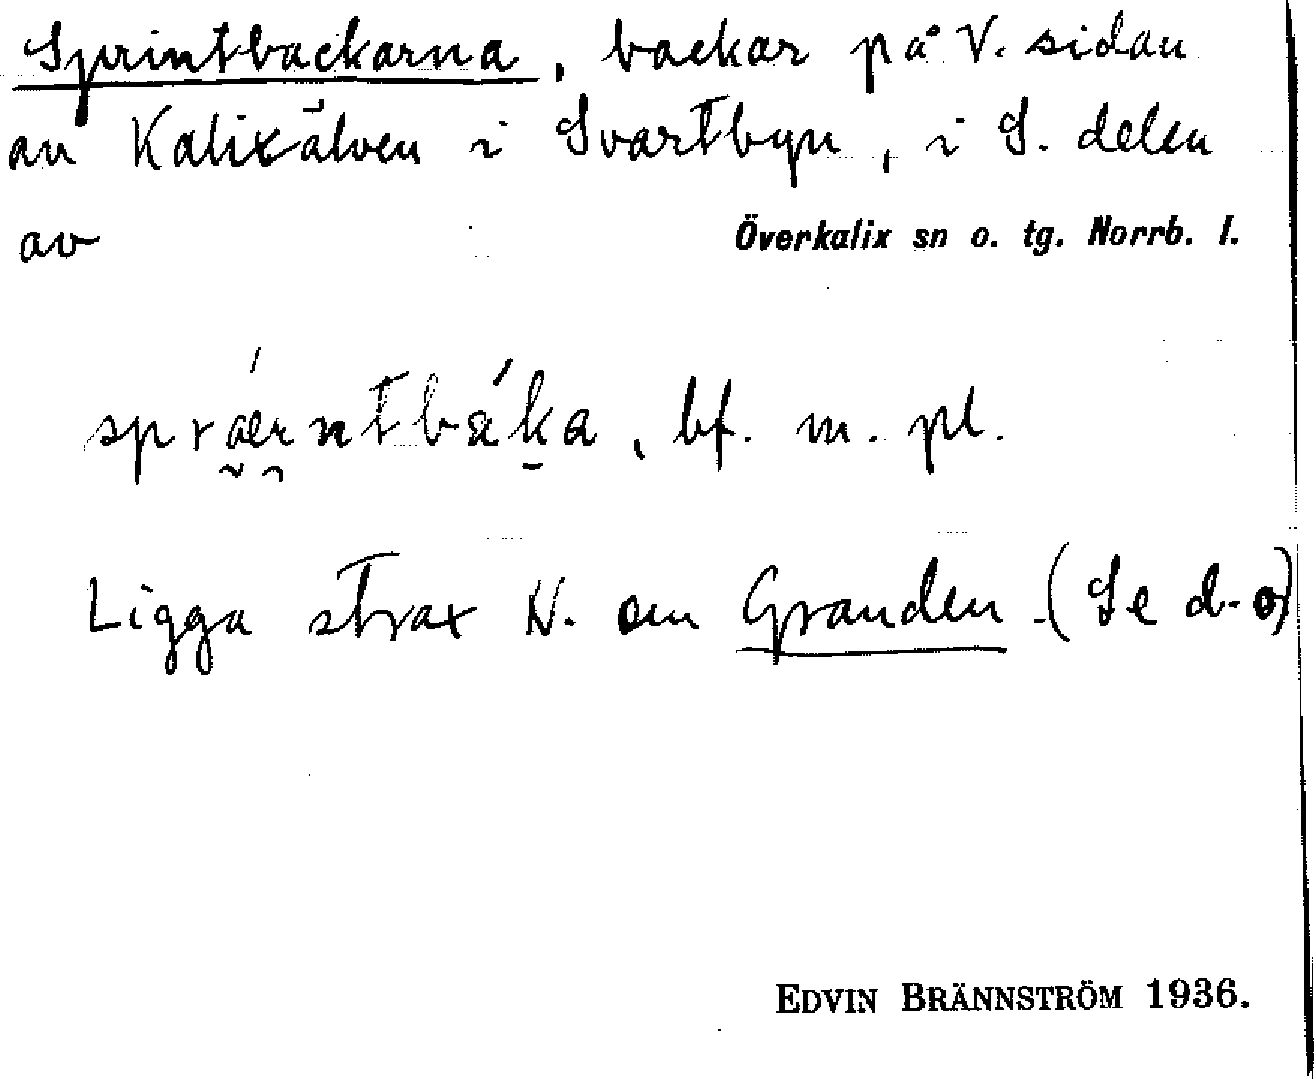 Sprintbackarna, backar på V. sidan
av Kalixälven i Svartbyn, i S. delen
av Överkalix sn o. tg. Norrb. l.
bf. m. pl.
Ligga strax N. om Granden (Se d. o)
EDVIN BRÄNNSTRÖM 1936.